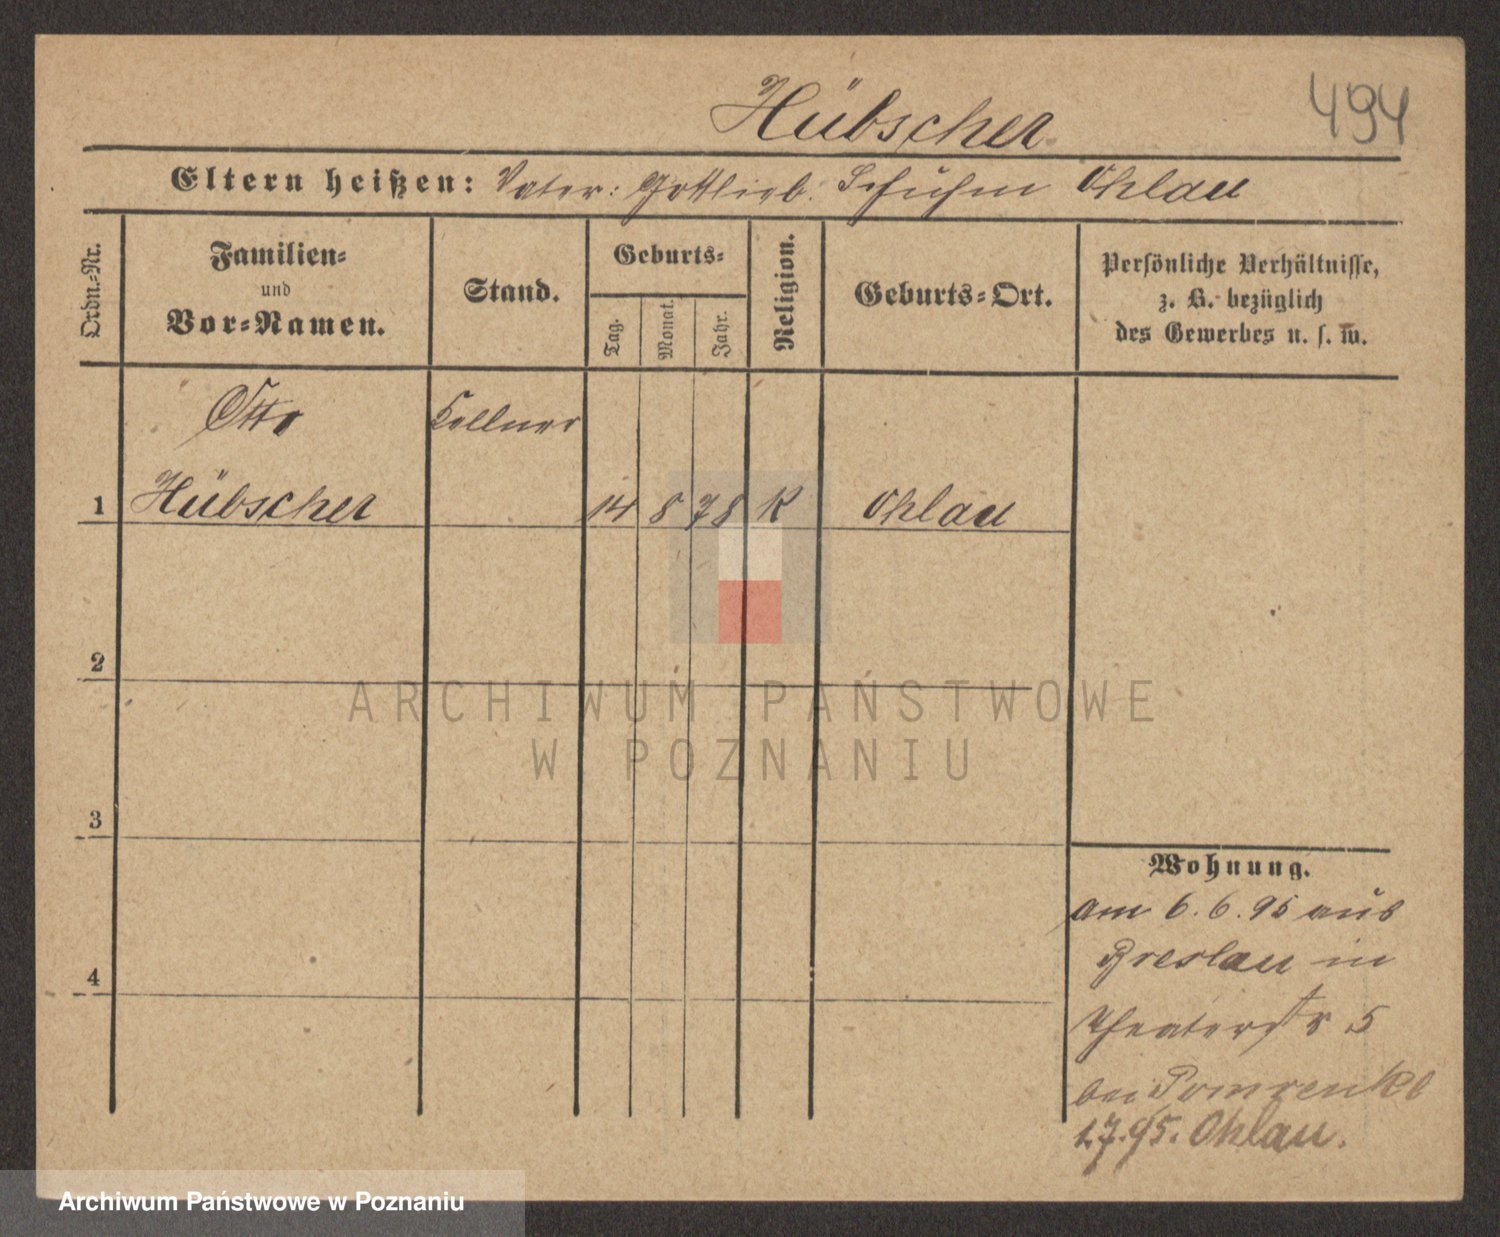 494
Hübscher
Eltern heißen: Vater: Gottlieb. Schuhm Ohlau
Ordn.-Nr.
Familien-
und
Vor-Namen.
Stand.
Geburts-
Tag.
Monat.
Jahr.
Religion.
Geburts-Ort.
Persönliche Verhältnisse,
z. B. bezüglich
des Gewerbes u. s. w.
Otto Kellner
1 Hübscher 14 8 78 K Ohlau
2
3
4
Wohnung.
am 6.6.95 aus
Breslau in
Theaterstr 5
bei Pomrenke
1.7.95. Ohlau.
ARCHIWUM PAŃSTWOWE
W POZNANIU
Archiwum Państwowe w Poznaniu